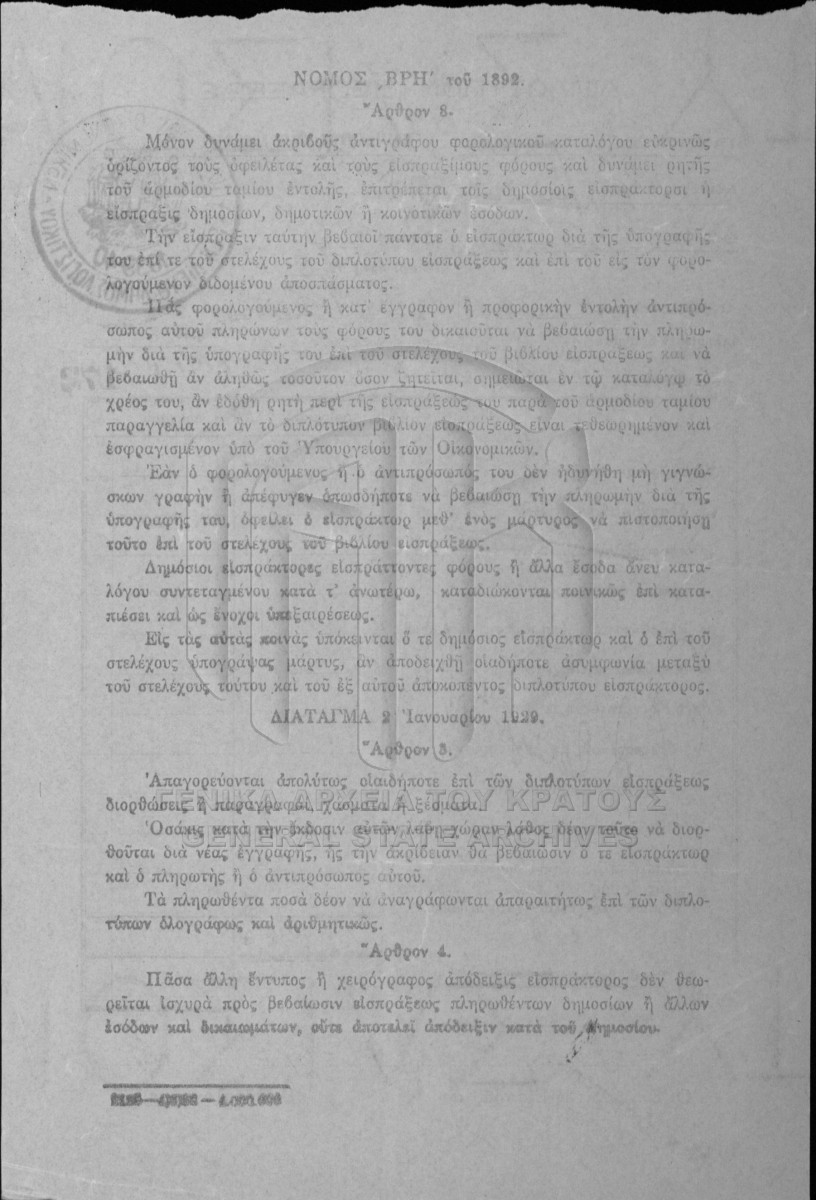 ΝΟΜΟΣ ͵ΒΡΗ΄ τοῦ 1892.
Ἄρθρον 8.
Μόνον δυνάμει ἀκριβοῦς ἀντιγράφου φορολογικοῦ καταλόγου εὐκρινῶς
ὁρίζοντος τοὺς ὀφειλέτας καὶ τοὺς εἰσπραξίμους φόρους καὶ δυνάμει ρητῆς
τοῦ ἁρμοδίου ταμίου ἐντολῆς, ἐπιτρέπεται τοῖς δημοσίοις εἰσπράκτορσι ἡ
εἴσπραξις δημοσίων, δημοτικῶν ἢ κοινοτικῶν ἐσόδων.
Τὴν εἴσπραξιν ταύτην βεβαιοῖ πάντοτε ὁ εἰσπράκτωρ διὰ τῆς ὑπογραφῆς
του ἐπί τε τοῦ στελέχους τοῦ διπλοτύπου εἰσπράξεως καὶ ἐπὶ τοῦ εἰς τὸν φορο-
λογούμενον διδομένου ἀποσπάσματος.
Πᾶς φορολογούμενος ἢ κατ᾽ ἔγγραφον ἢ προφορικὴν ἐντολὴν ἀντιπρό-
σωπος αὐτοῦ πληρώνων τοὺς φόρους του δικαιοῦται νὰ βεβαιώσῃ τὴν πληρω-
μὴν διὰ τῆς ὑπογραφῆς του ἐπὶ τοῦ στελέχους τοῦ βιβλίου εἰσπράξεως καὶ νὰ
βεβαιωθῇ ἂν ἀληθῶς τοσοῦτον ὅσον ζητεῖται, σημειῶται ἐν τῷ καταλόγῳ τὸ
χρέος του, ἂν ἐδόθη ρητὴ περὶ τῆς εἰσπράξεώς του παρὰ τοῦ ἁρμοδίου ταμίου
παραγγελία καὶ ἂν τὸ διπλότυπον βιβλίον εἰσπράξεως εἶναι τεθεωρημένον καὶ
ἐσφραγισμένον ὑπὸ τοῦ Ὑπουργείου τῶν Οἰκονομικῶν.
Ἐὰν ὁ φορολογούμενος ἢ ὁ ἀντιπρόσωπός του δὲν ἠδυνήθη μὴ γιγνώ-
σκων γραφὴν ἢ ἀπέφυγεν ὁπωσδήποτε νὰ βεβαιώσῃ τὴν πληρωμὴν διὰ τῆς
ὑπογραφῆς του, ὀφείλει ὁ εἰσπράκτωρ μεθ᾽ ἑνὸς μάρτυρος νὰ πιστοποιήσῃ
τοῦτο ἐπὶ τοῦ στελέχους τοῦ βιβλίου εἰσπράξεως.
Δημόσιοι εἰσπράκτορες εἰσπράττοντες φόρους ἢ ἄλλα ἔσοδα ἄνευ κατα-
λόγου συντεταγμένου κατὰ τ᾽ ἀνωτέρω, καταδιώκονται ποινικῶς ἐπὶ κατα-
πιέσει καὶ ὡς ἔνοχοι ὑπεξαιρέσεως.
Εἰς τὰς αὐτὰς ποινὰς ὑπόκεινται ὅ τε δημόσιος εἰσπράκτωρ καὶ ὁ ἐπὶ τοῦ
στελέχους ὑπογράψας μάρτυς, ἂν ἀποδειχθῇ οἱαδήποτε ἀσυμφωνία μεταξὺ
τοῦ στελέχους τούτου καὶ τοῦ ἐξ αὐτοῦ ἀποκοπέντος διπλοτύπου εἰσπράκτορος.
ΔΙΑΤΑΓΜΑ 2 Ἰανουαρίου 1929.
Ἄρθρον 3.
Ἀπαγορεύονται ἀπολύτως οἱαιδήποτε ἐπὶ τῶν διπλοτύπων εἰσπράξεως
ΓΕΝΙΚΑ ΑΡΧΕΙΑ ΤΟΥ ΚΡΑΤΟΥΣ
διορθώσεις ἢ παραγραφαί, χάσματα ἢ ξέσματα.
Ὁσάκις κατὰ τὴν ἔκδοσιν αὐτῶν λάβῃ χώραν λάθος δέον τοῦτο νὰ διορ-
GENERAL STATE ARCHIVES
θοῦται διὰ νέας ἐγγραφῆς, ἧς τὴν ἀκρίβειαν θὰ βεβαιῶσιν ὅ τε εἰσπράκτωρ
καὶ ὁ πληρωτὴς ἢ ὁ ἀντιπρόσωπος αὐτοῦ.
Τὰ πληρωθέντα ποσὰ δέον νὰ ἀναγράφωνται ἀπαραιτήτως ἐπὶ τῶν διπλο-
τύπων ὁλογράφως καὶ ἀριθμητικῶς.
Ἄρθρον 4.
Πᾶσα ἄλλη ἔντυπος ἢ χειρόγραφος ἀπόδειξις εἰσπράκτορος δὲν θεω-
ρεῖται ἰσχυρὰ πρὸς βεβαίωσιν εἰσπράξεως πληρωθέντων δημοσίων ἢ ἄλλων
ἐσόδων καὶ δικαιωμάτων, οὔτε ἀποτελεῖ ἀπόδειξιν κατὰ τοῦ Δημοσίου.